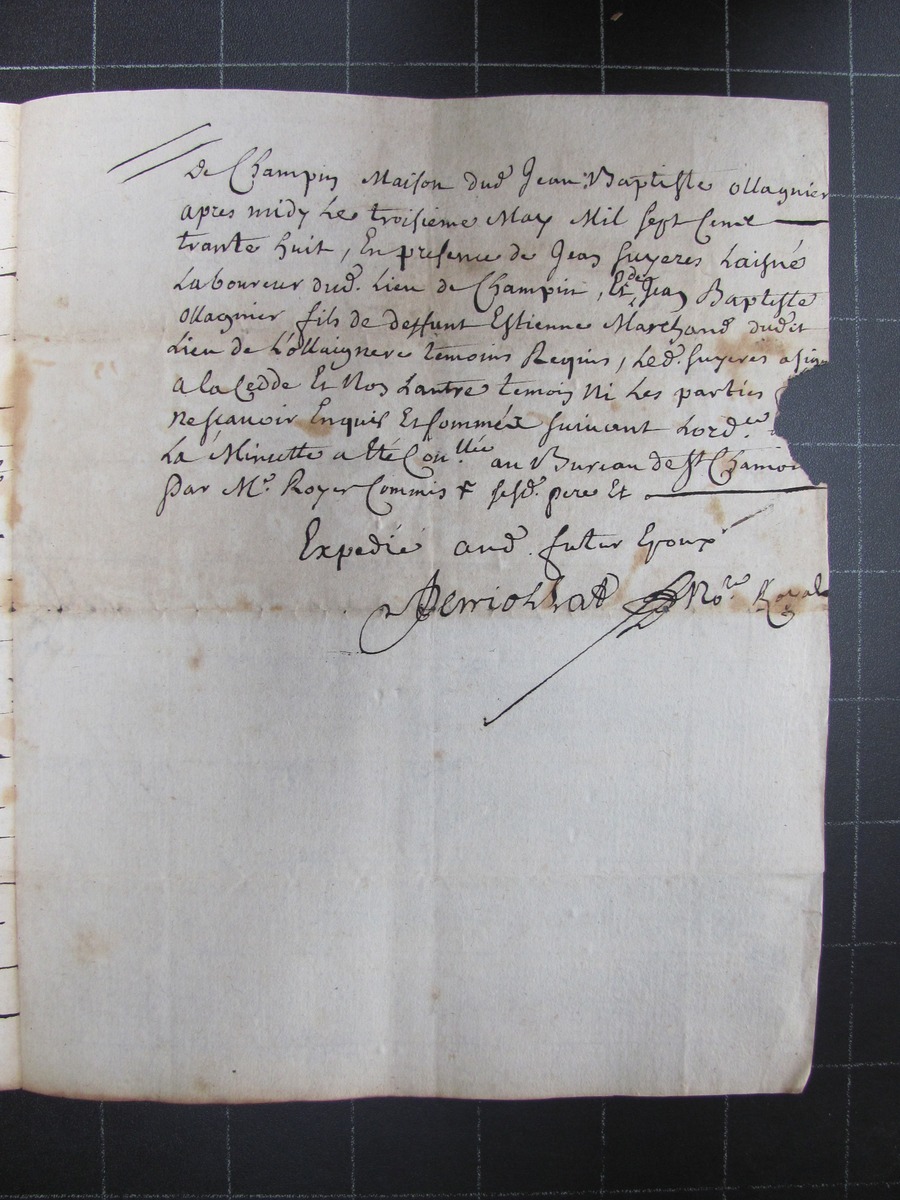 de Champin Maison dud. Jean Baptiste ollagnier
apres midy Le troisieme May Mil sept Cent
trante huit, En presence de Jean Suyeres Laisné
Laboureur dud. Lieu de Champin, Et de Jean Baptiste
ollagnier fils de deffunt Estienne Marchand dudit
Lieu de Lollaignere temoins Requis, Led. Suyeres a sig
a la Cedde Et Non Lautre temoin Ni Les parties
Nescavoir Enquis Et sommés suivant Lord.ce
La Minutte a Eté Con.llée au Bureau de St Chamon
par Mr. Royer Commis sesd. pere Et
Expedié aud. futur Epoux
No.re Royal